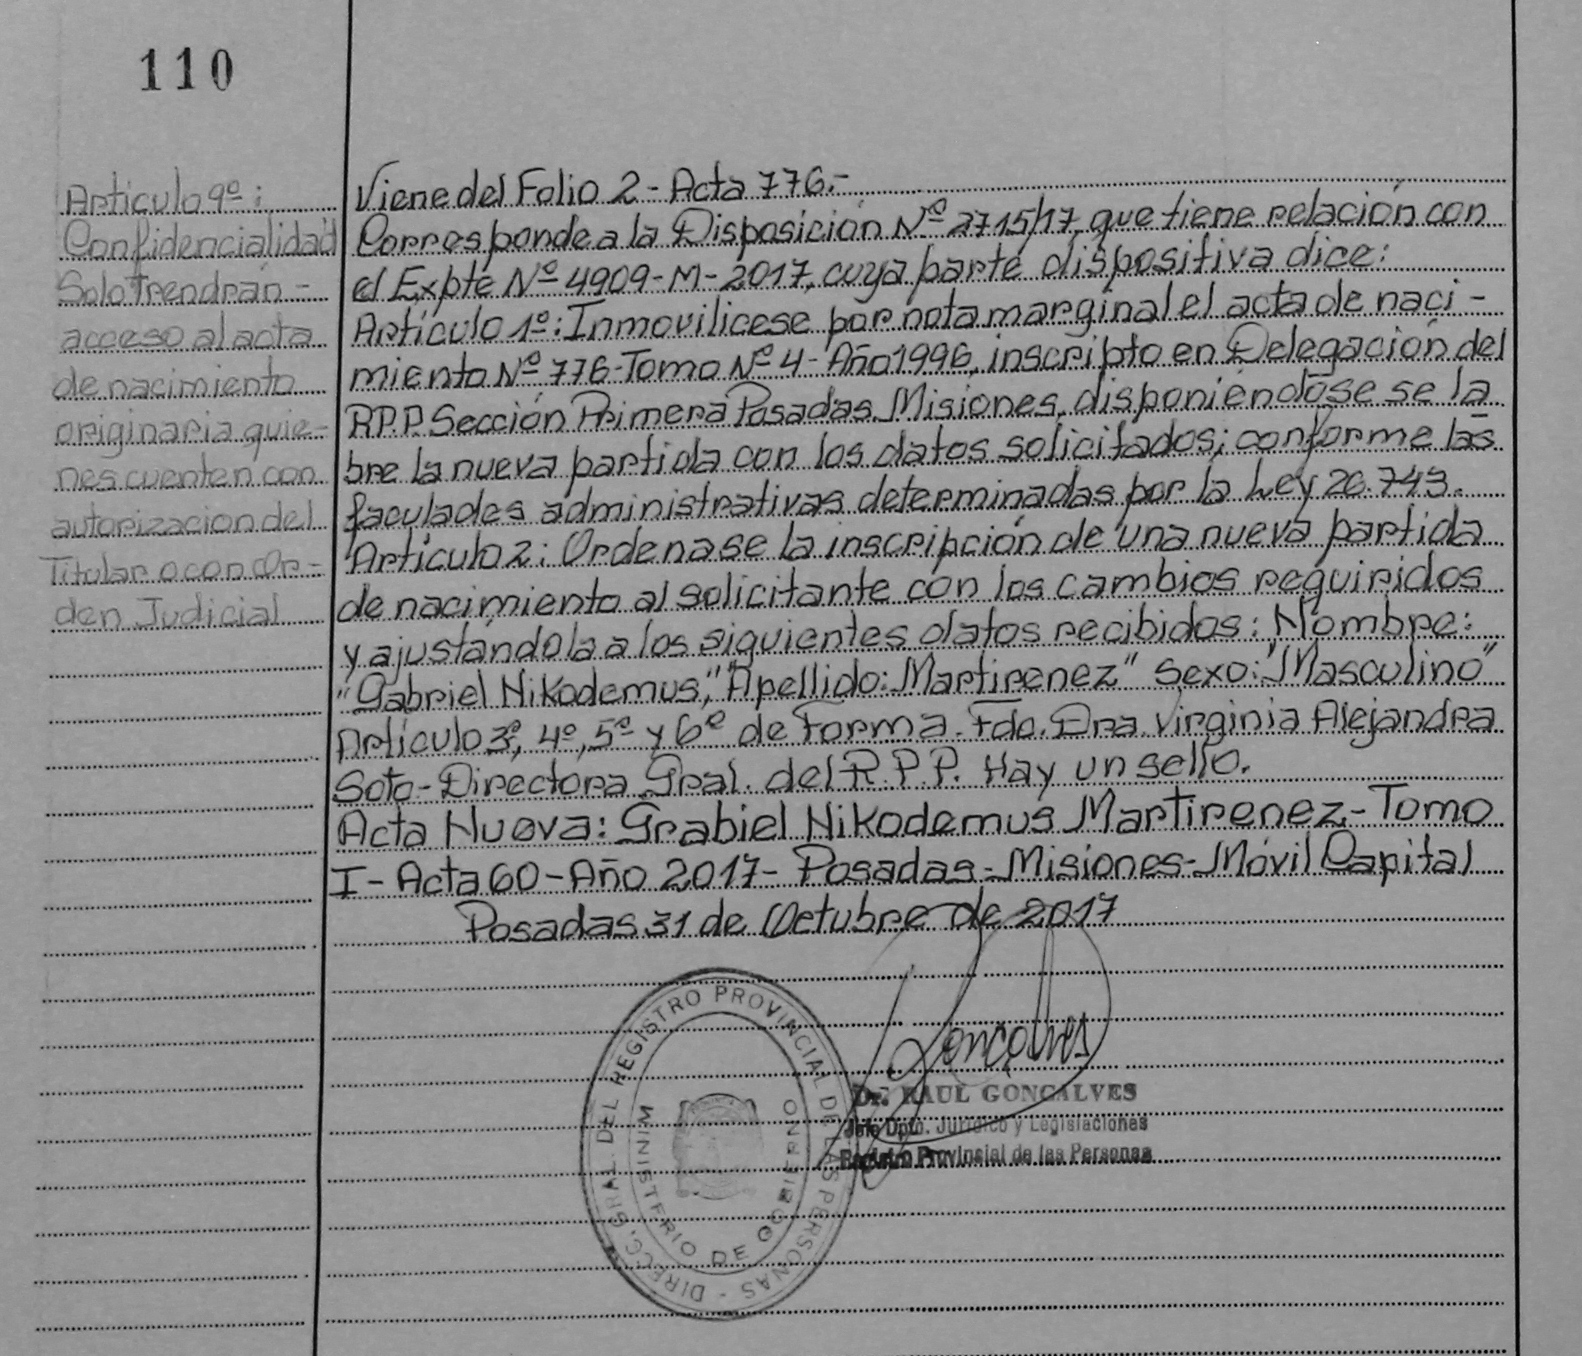 110
Artículo 9º:
Confidencialidad
Solo Trendrán -
acceso al acta
de nacimiento
originaria quie-
nes cuenten con
autorizacion del
Titular o con Or-
den Judicial
Viene del Folio 2 - Acta 776.-
Corresponde a la Disposición Nº 2715/17, que tiene relación con
el Expte Nº 4909-M-2017, cuya parte dispositiva dice:
Artículo 1º: Inmovilicese por nota marginal el acta de naci-
miento Nº 776-Tomo Nº 4 - Año 1996, inscripto en Delegación del
R.P.P. Sección Primera Posadas Misiones, disponiéndose se la
bre la nueva partida con los datos solicitados; conforme las
faculades administrativas determinadas por la Ley 26.743.
Artículo 2: Ordenase la inscripción de una nueva partida
de nacimiento al solicitante con los cambios requiridos
y ajustándola a los siguientes datos recibidos: Nombre:
"Gabriel Nikodemus," "Apellido: Martirenez" Sexo: "Masculino"
Artículo 3º, 4º, 5º y 6º de Forma. Fdo. Dra. Virginia Alejandra
Soto - Directora Gral. del R.P.P. Hay un sello.
Acta Nueva: Grabiel Nikodemus Martirenez - Tomo
I - Acta 60 - Año 2017 - Posadas - Misiones - Móvil Capital
Posadas 31 de Octubre de 2017
DIRECC. GRAL. DEL REGISTRO PROVINCIAL DE LAS PERSONAS -
MINISTERIO DE GOBIERNO
Goncalves
Dr. RAUL GONCALVES
Jefe Dpto. Jurídico y Legislaciones
Registro Provincial de las Personas